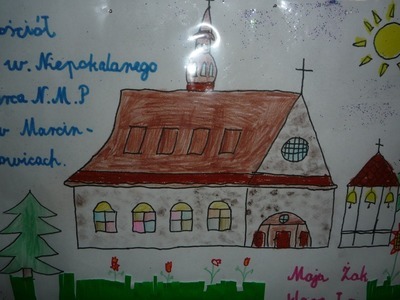 ościół
w. Niepokalanego
erca N.M.P
w Marcin-
owicach.
Maja Żak